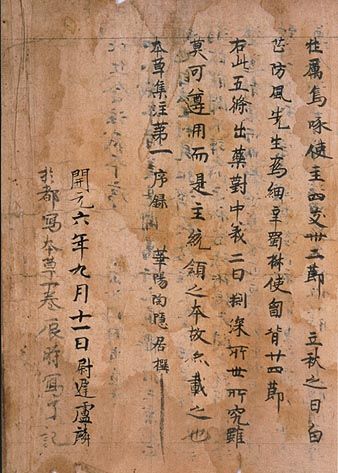 牡厲烏啄使主四支卅二節 立秋之日白
芷防風先生為細辛蜀椒使匈背廿四節
右此五條出藥對中義旨渊深所世所究雖
莫可遵用而是主統領之本故亦載之也
本草集注第一序錄 華陽陶隱居撰
開元六年九月十一日尉遲盧麟
於都寫本草一卷辰時寫了記